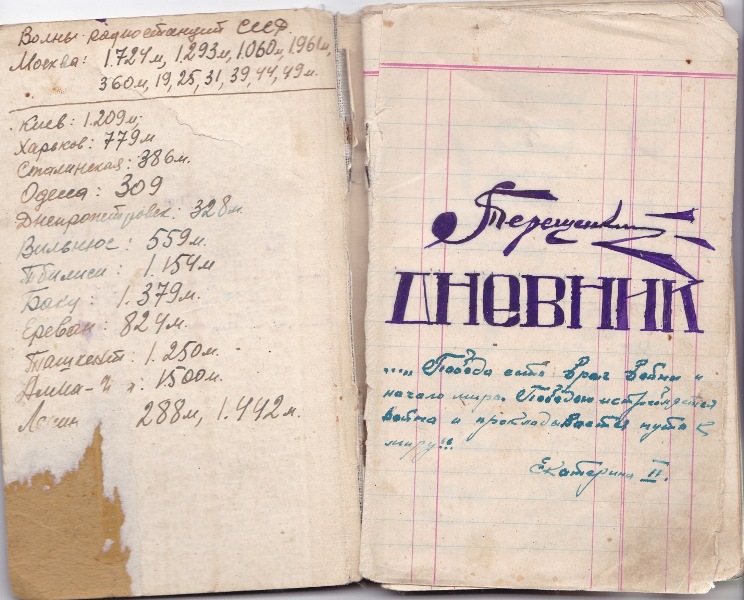 Волны радиостанций СССР.
Москва: 1.724м, 1.293м, 1.060м, 1961м,
360м, 19, 25, 31, 39, 44, 49м.
Киев: 1.209м,
Харьков: 779м
Сталинская: 386м.
Одесса: 309
Днепропетровск: 328м.
Вильнюс: 559м.
Тбилиси: 1.154м
Баку: 1.379м.
Ереван: 824м.
Ташкент: 1.250м.
Алма- 1500м.
288м, 1.442м.
Терещенко
ДНЕВНИК
.... Победа есть враг войны и
начало мира. Победою истребляется
война и прокладывается путь к
миру!..
Екатерина II.